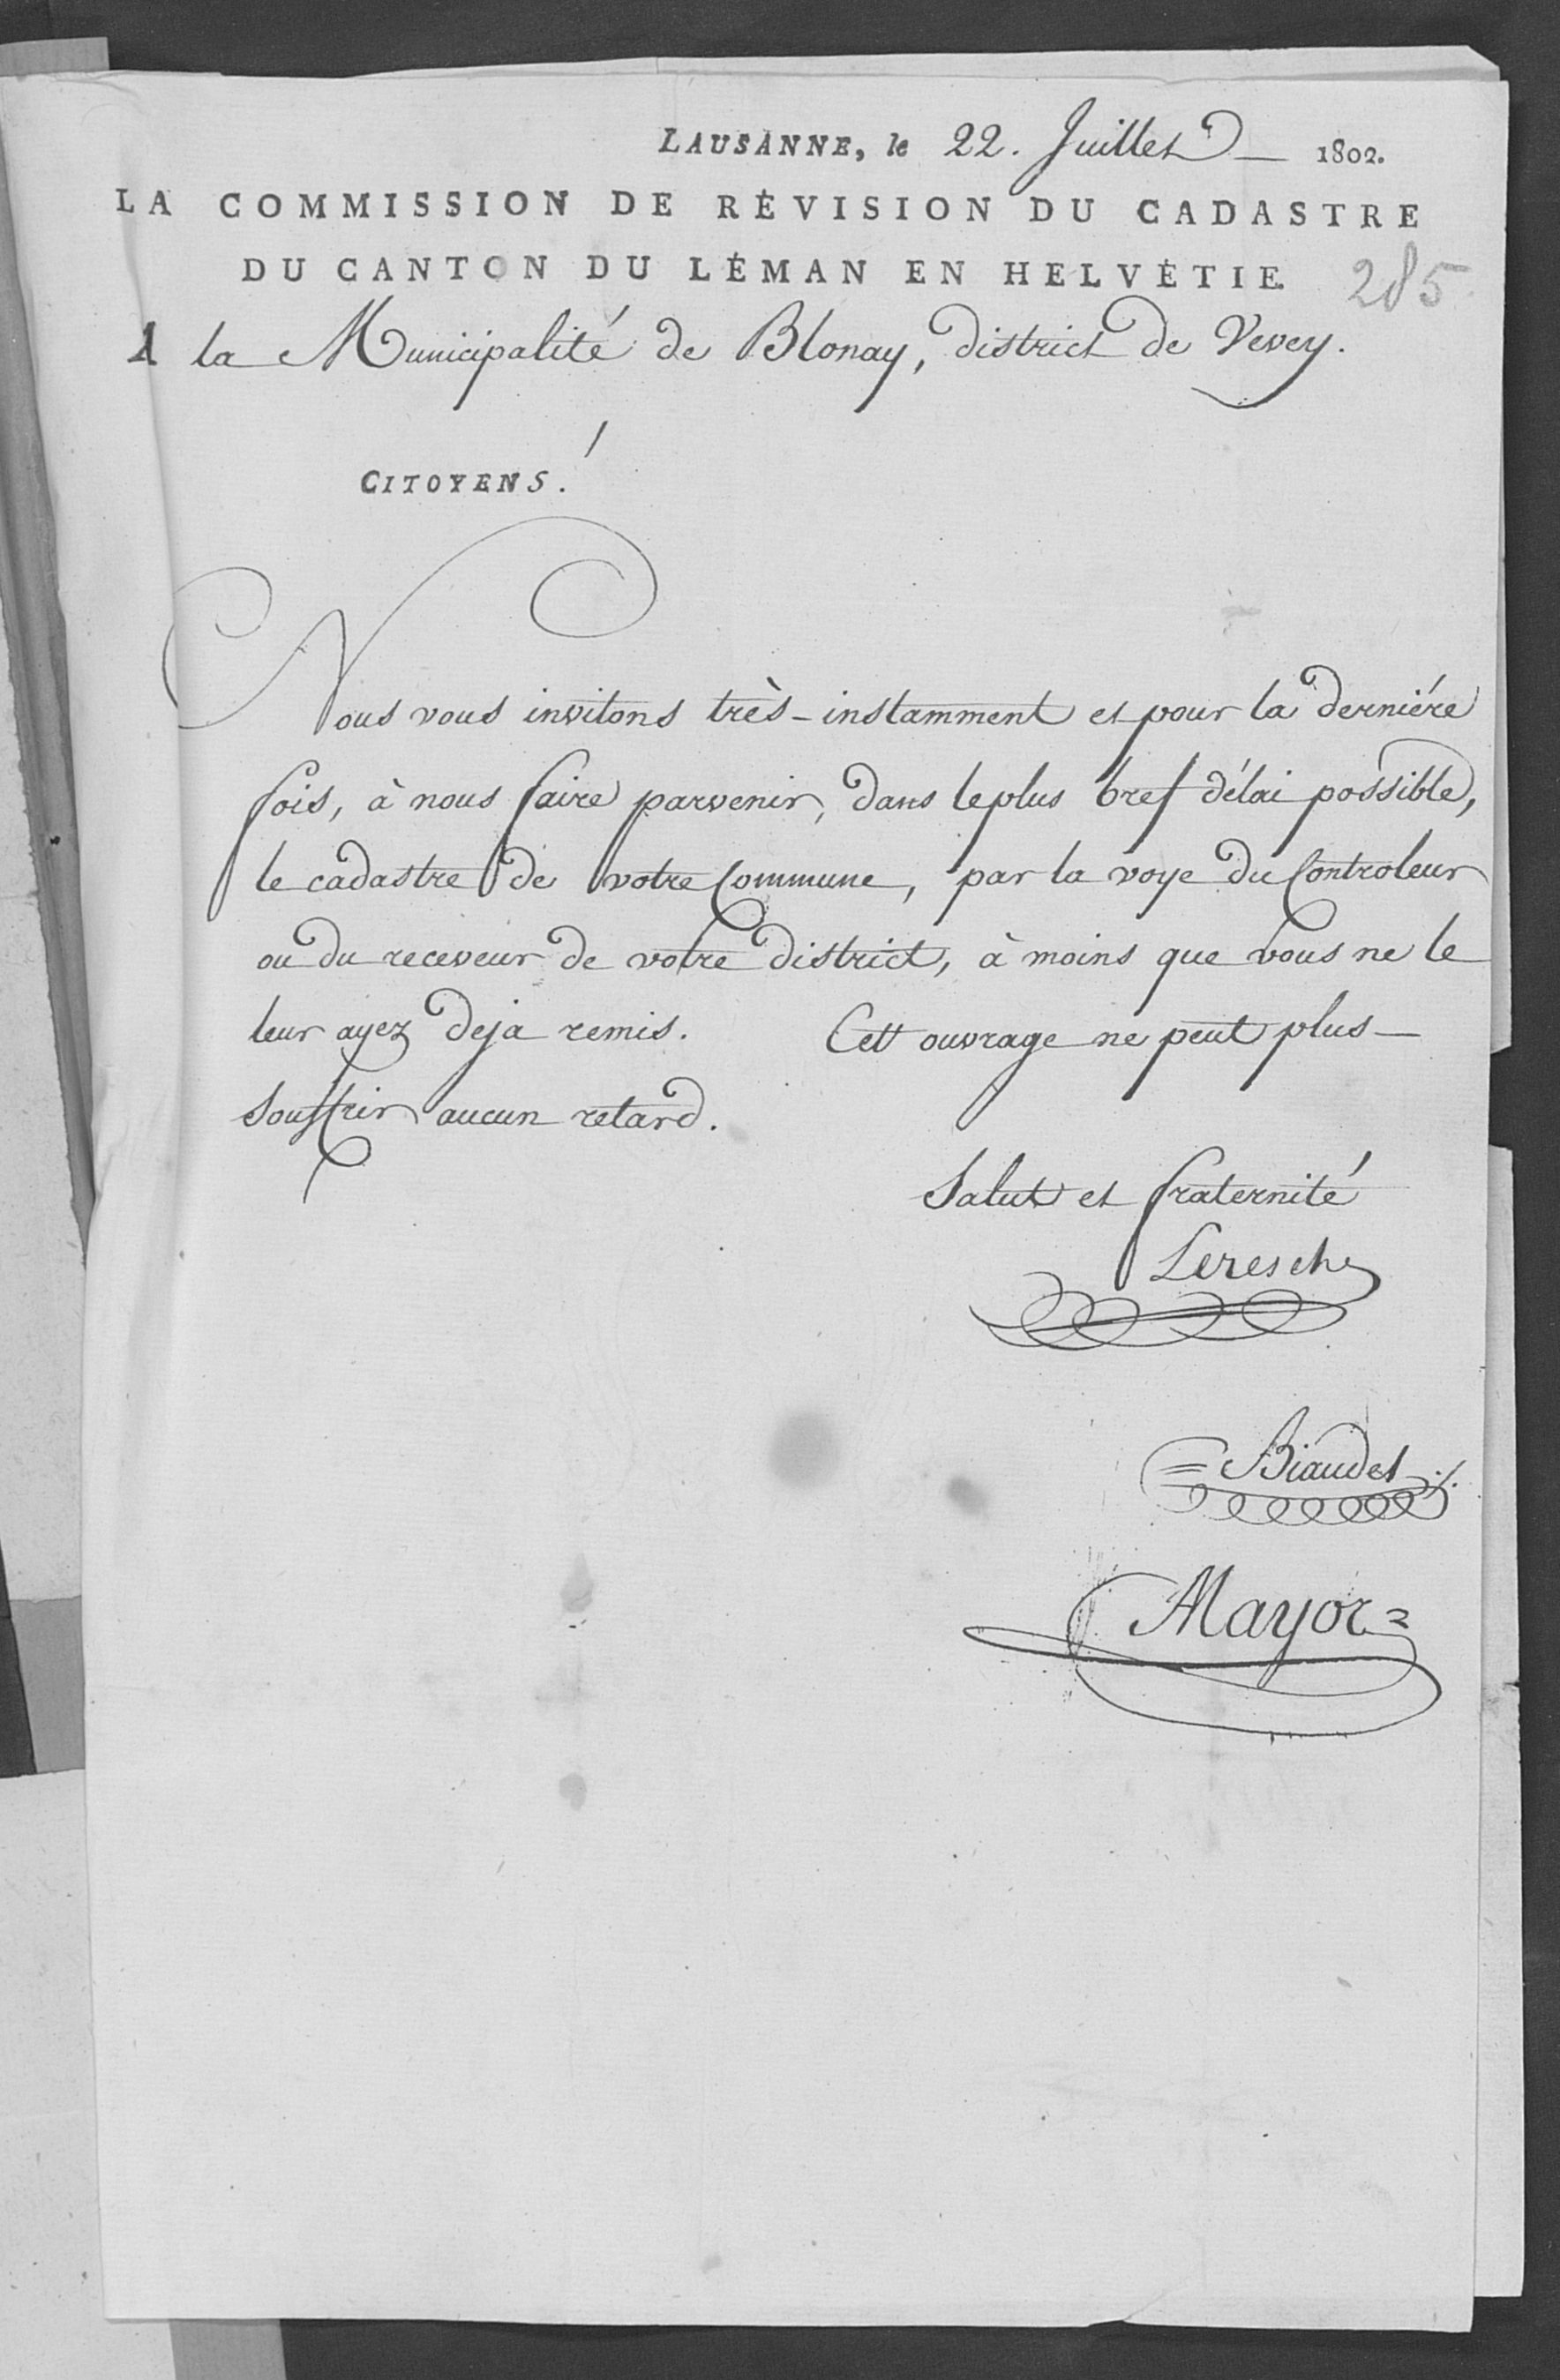 LAUSANNE, le 22. Juillet — 1802.
LA COMMISSION DE RÉVISION DU CADASTRE
DU CANTON DU LÉMAN EN HELVÉTIE.
285
A la Municipalité de Blonay, district de Vevey.
CITOYENS!
Nous vous invitons très-instamment et pour la derniére
fois, à nous faire parvenir, dans le plus bref délai possible,
le cadastre de votre Commune, par la voye du Controleur
ou du receveur de votre district, à moins que vous ne le
leur ayez deja remis. Cett ouvrage ne peut plus —
souffrir aucun retard.
Salut et fraternité
Leresche
Biaudet
Mayor